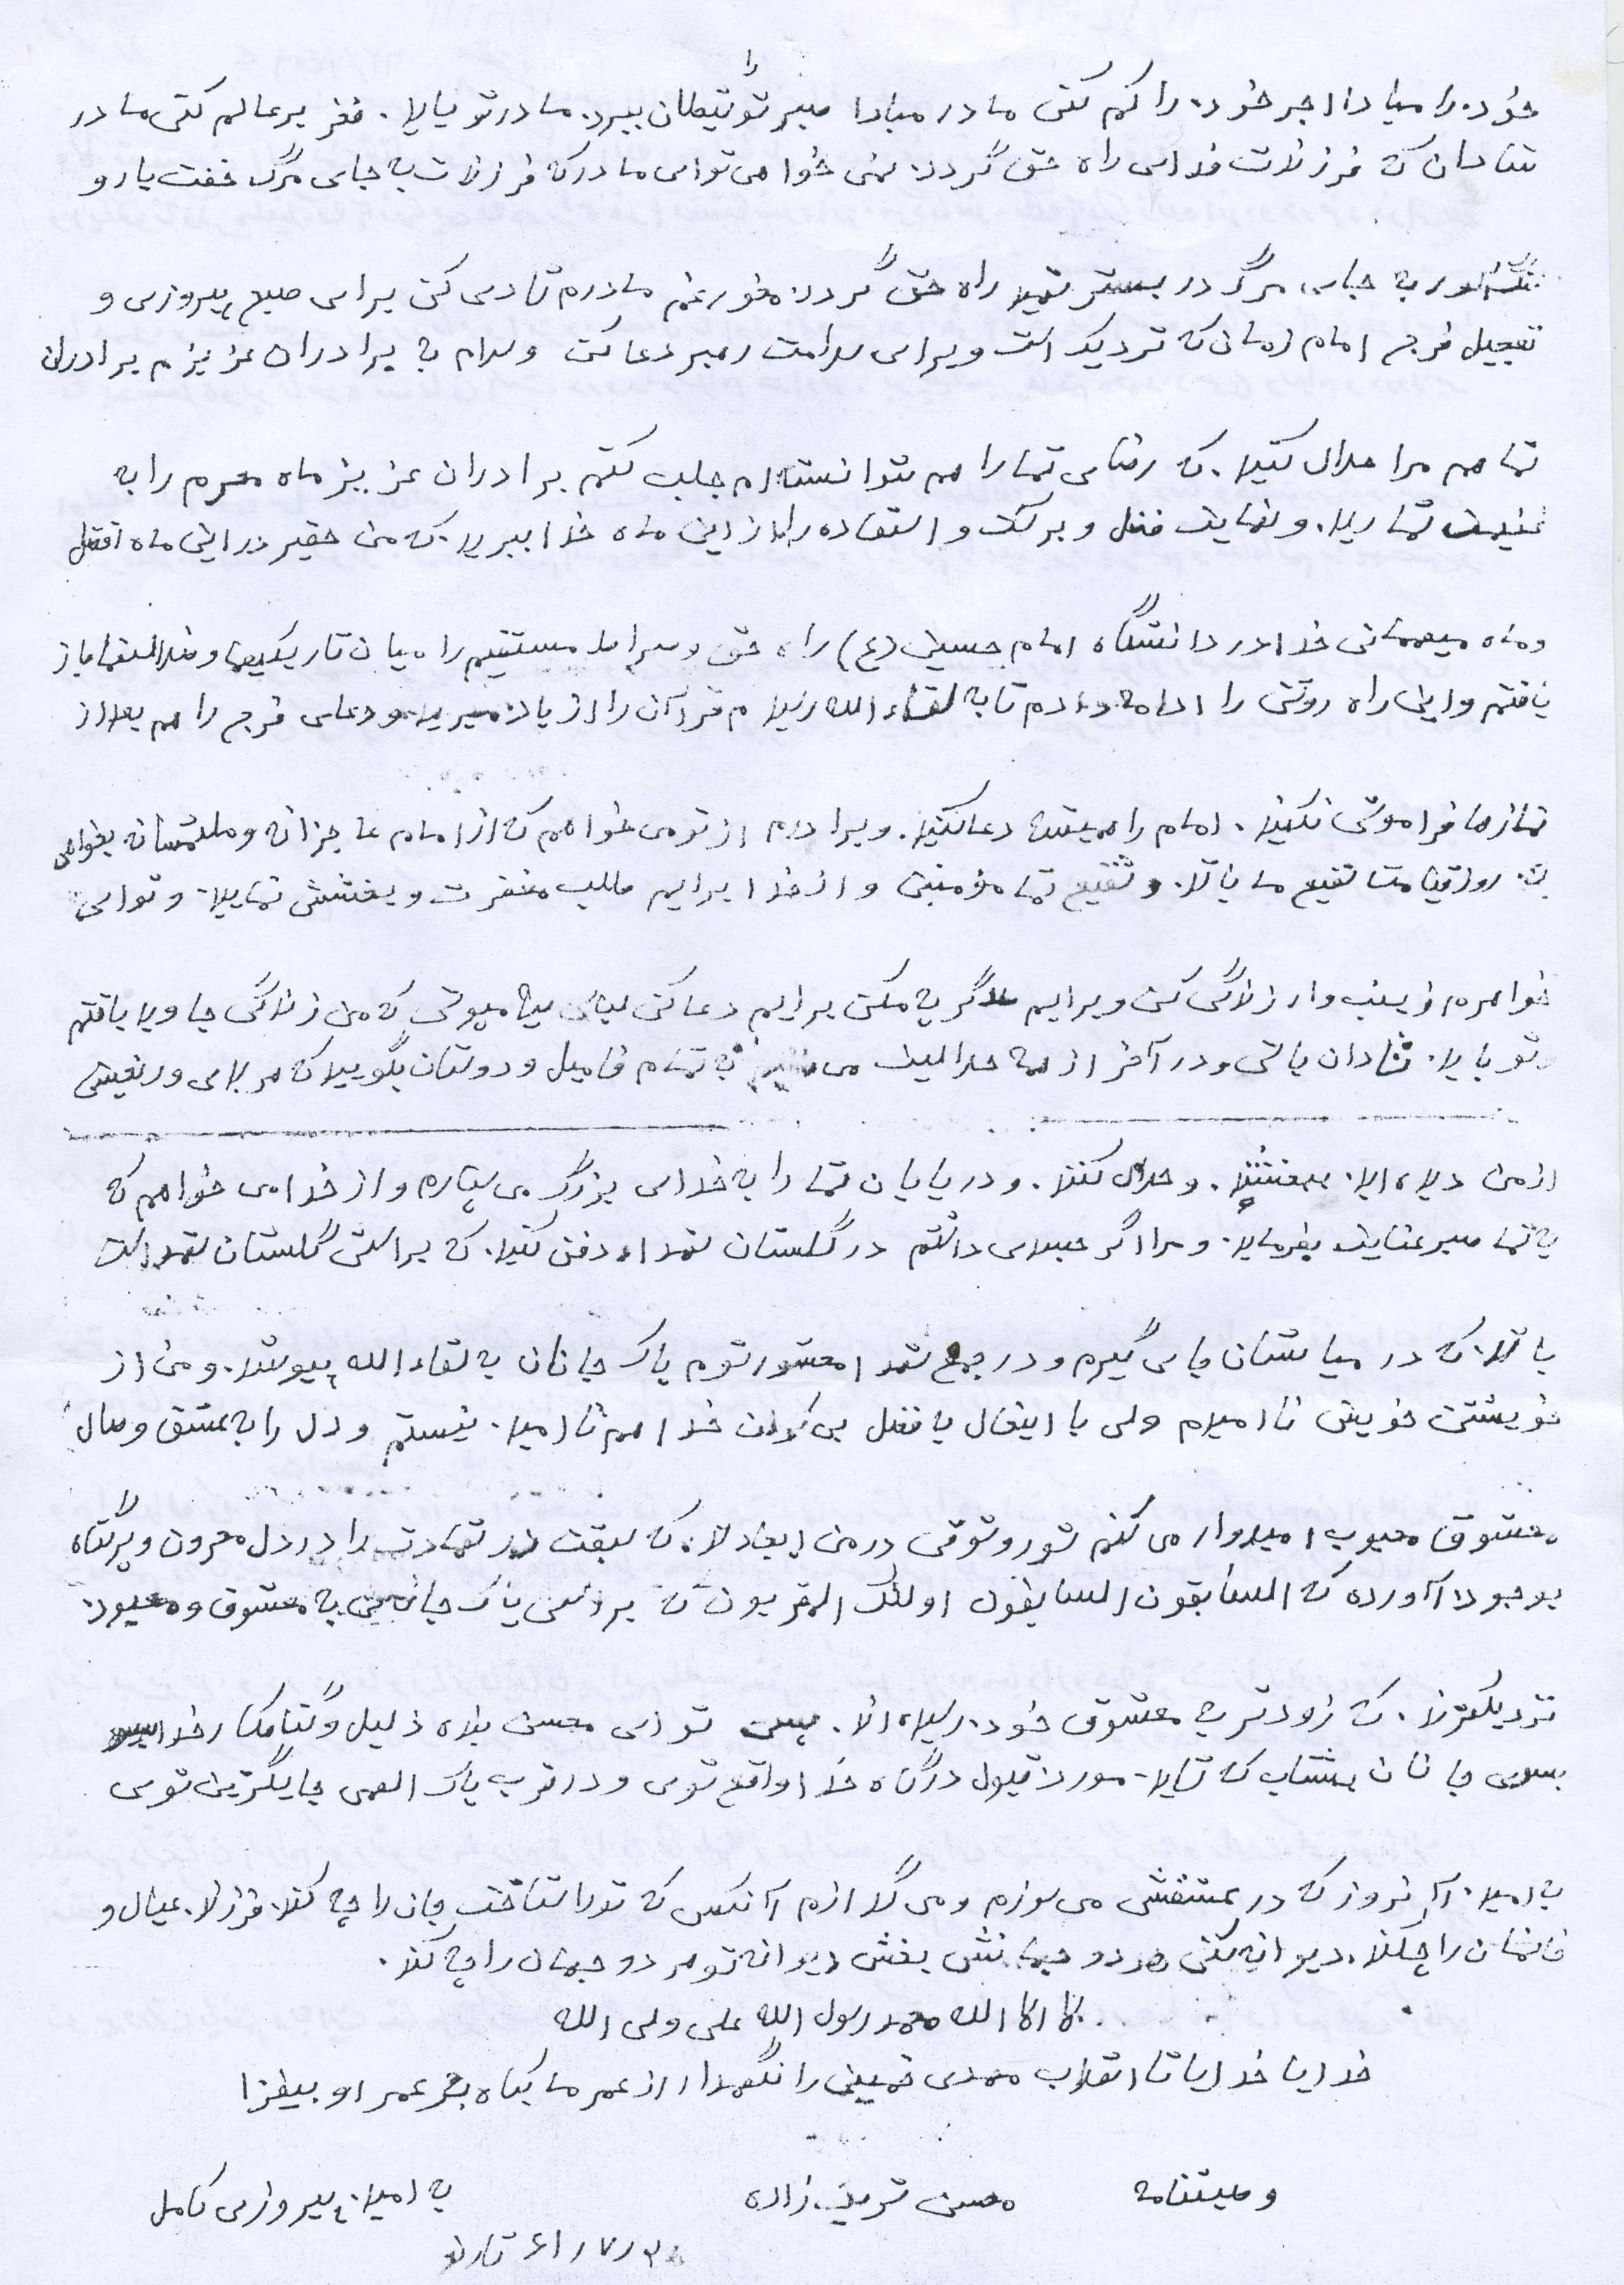 خود را مبادا اجر خود را کم کنی مادر مبادا صبر تو را شیطان ببرد. مادر تو باید. فخر بر عالم کنی مادر
شادمان که فرزندت فدای راه حق گردد. نمی خواهی تو ای مادر که فرزندت به جای مرگ خفت بار و
به جای مرگ در بستر شهید راه حق گردد. مخور غم مادرم شادی کن برای صبح پیروزی و
تعجیل فرج امام زمان که نزدیک است و برای سلامت رهبر دعا کن و سلام به برادران عزیزم برادران
شما هم مرا حلال کنید. که رضای شما را هم نتوانسته‌ام جلب کنم برادران عزیز ماه محرم را به
غنیمت شمارید. و نهایت فضل و برکت و استفاده را از این ماه خدا ببرید. که من حقیر در این ماه افضل
و ماه میهمانی خدا در دانشگاه امام حسین (ع) راه حق و صراط مستقیم را میان تاریکیها و ضلالتها باز
یافتم و این راه روشن را ادامه دادم تا به لقاء الله رسیدم قرآن را از یاد مبرید و دعای فرج را هم بعد از
نمازها فراموش نکنید. امام را همیشه دعا کنید. و برادرم از تو می خواهم که از امام عاجزانه و ملتمسانه بخواهی
روز قیامت شفیع ما باشد. و شفیع تمام مؤمنین و از خدا برایم طلب مغفرت و بخشش نمایید. و تو ای
خواهرم زینب وار زندگی کن و برایم گریه مکن برایم دعا کن سیاه مپوش که من زندگی جاوید یافتم
و تو باید. شادان باشی و در آخر از همه حلالیت می به تمام فامیل و دوستان بگویید که هر بدی و رنجشی
از من دیده اید. ببخشید. و حلال کنند. و در پایان شما را به خدای بزرگ می سپارم و از خدا می خواهم که
به شما صبر عنایت بفرماید. و مرا اگر جسدی داشتم در گلستان شهداء دفن کنید. که براستی گلستان شهد است
باشد. که در میانشان جای گیرم و در جمع شهدا محشور شوم پاک جانان به لقاء الله پیوستند. و من از
خویشتن خویش نا امیدم ولی با اینحال به فضل بی کران خدا هم نا امید. نیستم و دل را به عشق وصال
معشوق محبوب امیدوار می کنم شور و شوقی در من ایجاد شد. که سبقت در شهادت را در دل محزون و پرگناه
بوجود آورده که السابقون السابقون اولئک المقربون که براستی پاک جانان به معشوق و معبود
نزدیکترند. که زودتر به معشوق خود رسیده اند. پس تو ای محسن بنده ذلیل و گناهکار خدا
بسوی جانان بشتاب که شاید. مورد قبول درگاه خدا واقع شوی و در قرب پاک الهی جایگزین شوی
به امید. آنروز که در عشقش می سوزم و می گدازم آنکس که تو را شناخت جان را چه کند. فرزند. عیال و
خانمان را چکند. دیوانه کنی هر دو جهانش بخشی دیوانه تو هر دو جهان را چه کند.
لا اله الا الله محمد رسول الله علی ولی الله
خدایا خدایا تا انقلاب مهدی خمینی را نگهدار از عمر ما بکاه بر عمر او بیفزا
وصیتنامه محسن شریف زاده به امید. پیروزی کامل